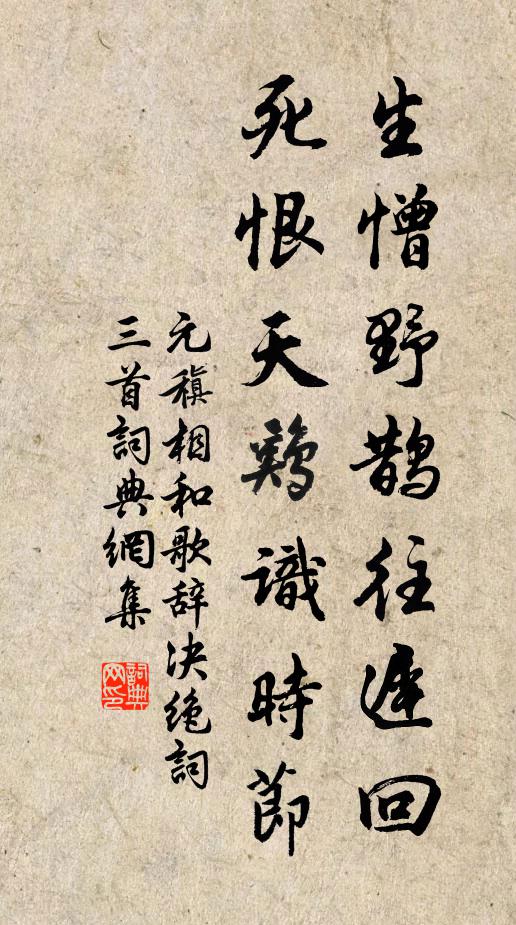 生憎野鵲往遲回
死恨天鷄識時節
元稹相和歌辞决绝詞
三首詞典網集
詞典
网印